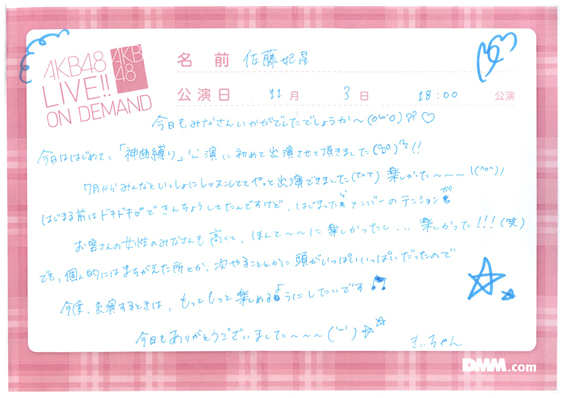 AKB48
LIVE!!
ON DEMAND
AKB
48
名前 佐藤妃星
公演日 11月 3日 18:00 公演
今日もみなさんいかがでしたでしょうか〜(o'ω'o)♡
今日ははじめて、「神曲縛り」公演に初めて出演させて頂きました!!
7月からみんなといっしょにレッスンしててやっと出演できました 楽しかった〜〜〜\(^o^)/
はじまる前はドキドキできんちょうしてたんですけど、はじまったらメンバーのテンションが
お客さんの女性のみなさんも高くて、ほんと〜〜に楽しかったし... 楽しかった!!!(笑)
でも、個人的にはまちがえた所とか、次やることとかに頭がいっぱいいっぱいだったので
今度、出演するときは、もっともっと楽しめるようにしたいです♪
今日もありがとうございました〜〜〜('ー')☆☆
きぃちゃん
DMM.com